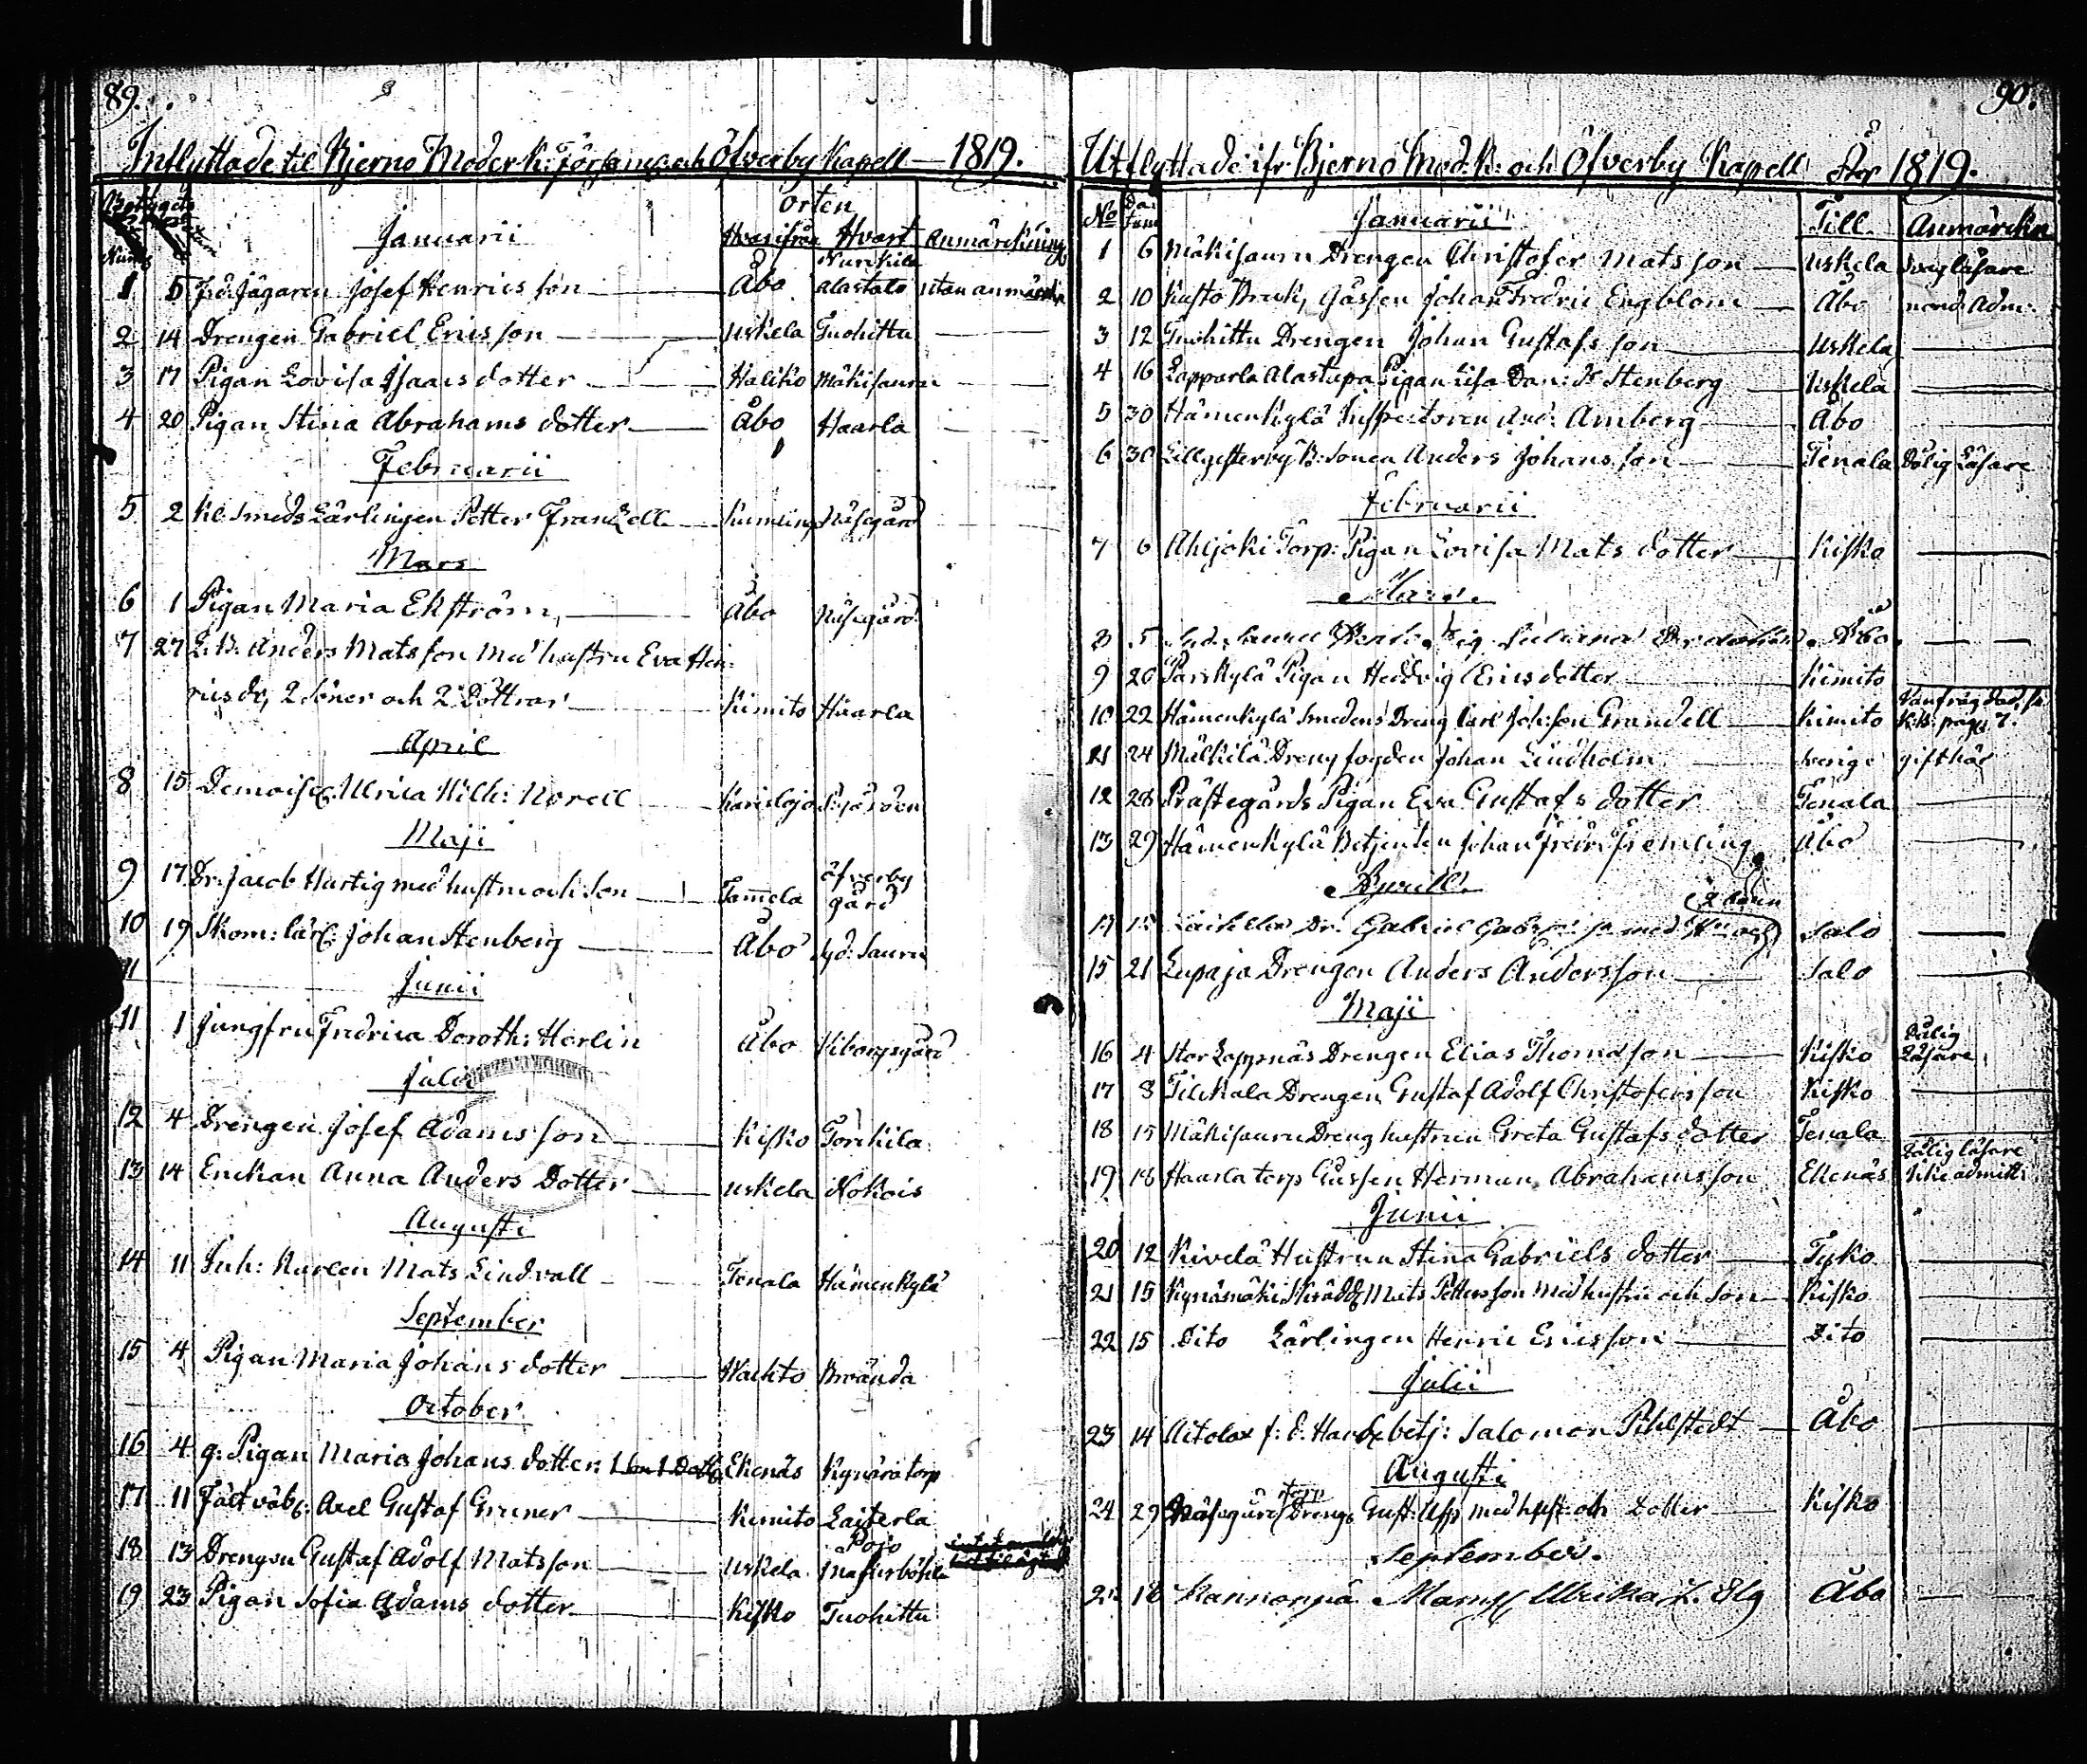 89.
Inflyttade til Bjerno Moder k: Församl: och Öfverby Kapell — 1819.
Betygets
Orten
Januarii Hvarifrån Hvart Anmärckning
1 5 Jägaren Josef Henricsson Åbo Alastalo utan anmärckn
2 14 Drengen Gabriel Ericsson Uskela Tuohittu
3 17 Pigan Lovisa Isaacs dotter Haliko Mäkisauru
4 20 Pigan Stina Abrahams dotter Åbo Haarla
Februarii
5 2 Kl. Smeds Lärlingen Petter Franzell Kumling Näsegård
Mars
6 1 Pigan Maria Ekström Åbo Näsegård
7 27 Anders Matsson med hustru Eva Hen-
rics dr, 2 Söner och 2 Döttrar Kimito Haarla
April
8 15 Demoisel. Ulrica Wilh: Norell Karislojo
Maji
9 17 Dr: Jacob Hartig med hustru och Son Tamela Öfverby gård
10 19 Skom: lärl: Johan Stenberg Åbo Yd: Sauru
11
Junii
11 1 Jungfru Fredrica Doroth: Herlin Åbo Wiborgsgård
Julii
12 4 Drengen Josef Adamsson Kisko Torckila
13 14 Enckan Anna Anders Dotter Uskela Nokois
Augusti
14 11 Inh: Karlen Mats Lindvall Tenala Hämenkylä
September
15 4 Pigan Maria Johans dotter Brända
October
16 4 g: Pigan Maria Johans dotter Ekenäs Kynära torp
17 11 Fältväb: Axel Gustaf Gruner Kimito Laiterla
18 13 Drengen Gustaf Adolf Matsson Uskela Pojo
19 23 Pigan Sofia Adams dotter Kisko Tuohittu
90.
Utflyttade ifr Bjerno Mod: k: och Öfverby Kapell År 1819.
No Datum Januarii Till Anmärckn
1 6 Mäkisauru Drengen Christofer Matsson Uskela Svag läsare
2 10 Kusto Bruk, Gåssen Johan Fredric Engblom Åbo
3 12 Tuohittu Drengen Johan Gustafs son Uskela
4 16 Lapparla Alastupa Pigan Lisa Dan: Dr Stenberg Uskela
5 30 Hämenkylä Inspectoren And: Amberg Åbo
6 30 Lillgesterby B: Sonen Anders Johans son Tenala Dålig Läsare
Februarii
7 6 Ahljoki Torp: Pigan Lovisa Mats dotter Kisko
Mars.
8 5 Yd: Sauru Åbo
9 20 Parskylä Pigan Hedvig Erics dotter Kimito
10 22 Hämenkylä Smedens Dreng Carl Joh: son Grandell Kimito
11 24 Mälkilä Drengfogden Johan Lindholm Sverige gift här
12 28 Prästegårds Pigan Eva Gustafs dotter Tenala
13 29 Hämenkylä Betjenten Johan Fredr: Fremling Åbo
Aprill.
2 barn
14 Dr. Gabriel med Salo
15 21 Lupaja Drengen Anders Andersson Salo
Maji
16 4 Stor Lappnäs Drengen Elias Thomasson Kisko Dålig Läsare
17 8 Tilckala Drengen Gustaf Adolf Christofersson Kisko
18 15 Mäkisauru Dreng hustrun Greta Gustafs dotter Tenala
19 18 Haarla torp Gåssen Herman Abrahamsson Ekenäs Dålig läsare Icke admitt:
Junii
20 12 Kivelä Hustrun Stina Gabriels dotter Tyko
21 15 Kynämäki Skrädd: Mats Pettersson med hustru och Son Kisko
22 15 Dito Lärlingen Henric Ericsson Dito
Julii
23 14 Aitolax f: d. betj: Salomon Pihlstedt Åbo
Augusti
24 29 Näsegård torp Dreng: Gust: med hust: och Dotter Kisko
September.
25 18 Mams: Ulrika Elg Åbo